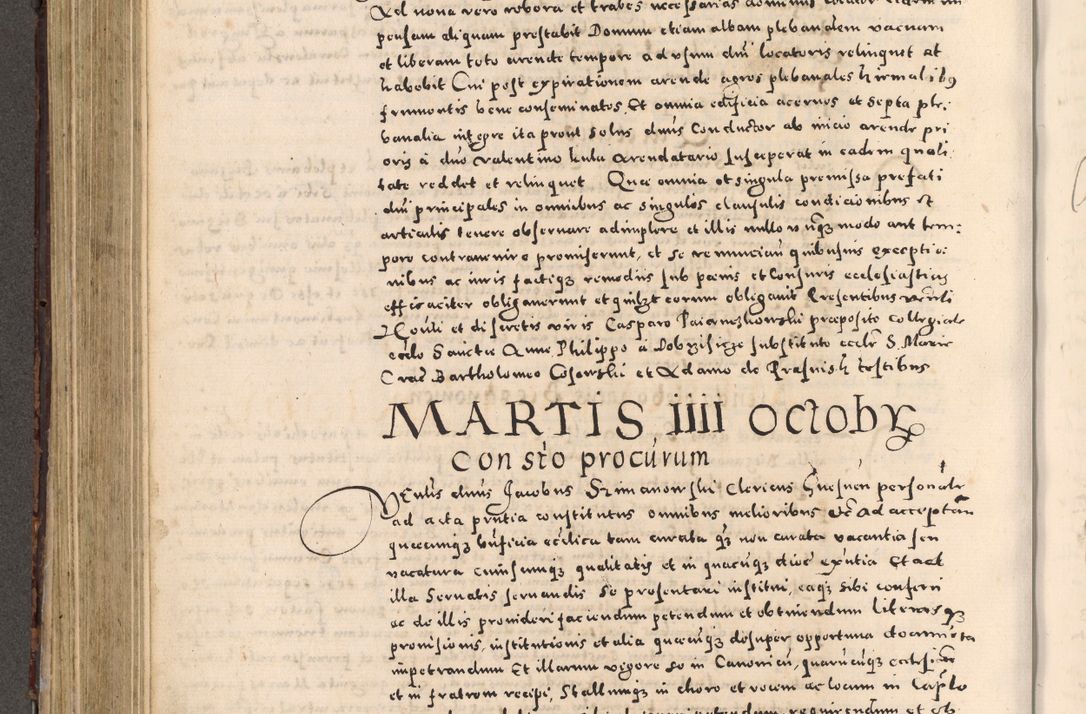 Ad nova vero robora et trabes necessarias dominus locator
pensam aliquam prestabit Domum etiam albam plebanalem vacuam
et liberam toto arende tempore ad usum dni locatoris relinquet at
habebit Cui post expirationem arende agros plebanales hiemalibus
frumentis bene conseminatos, Et omnia edificia acervos et septa ple-
banalia integre ita prout solus dnus Conductor ab inicio arende pri
oris a dno Valentino kula Arendatario susceperat in eadem quali-
tate reddet et relinquet Quae omnia et singula premissa prefati
dni principales in omnibus ac singulis clausulis condicionibus et
articulis tenere observare adimplere et illis nullo unquam modo aut tem-
pore contravenire promiserunt, et se renuncian quibusvis exceptio-
nibus ac iuris factique remediis sub poenis et Censuris ecclesiasticis
efficaciter obligaverunt et quilzt eorum obligavit Presentibus venerli
Honli et discretis viris Casparo praeposito Collegiate
eccle Sanctae Annae Philippo a substituto eccle S. Mariae
Crac Bartholomeo Cosowski et Adamo de Prasnish testibus
MARTIS IIII Octobr
Constto procurum
Venlis dnus Jacobus Szimanowski Clericus Gnesnen personalr
ad acta pntia constitutus omnibus melioribus etc Ad acceptan
quaecunq bnficia ecclica tam curata q non curata vacantia seu
vacatura cuiuscumq qualitatis et in quacuq dioc exntia Et ad
illa Servatis servandis se presentari institui, eaq sibi conferri
ac de illis provideri faciendum petendum et obtinendum literas q
provisionis, institutionis et alia quaecuq desuper opportuna documeta
impetrandum Et illarum vigore se in Canonicu, quarucuq ecclesiar
et in fratrem recipi, Stallumq in choro et vocem ac locum in Caplo